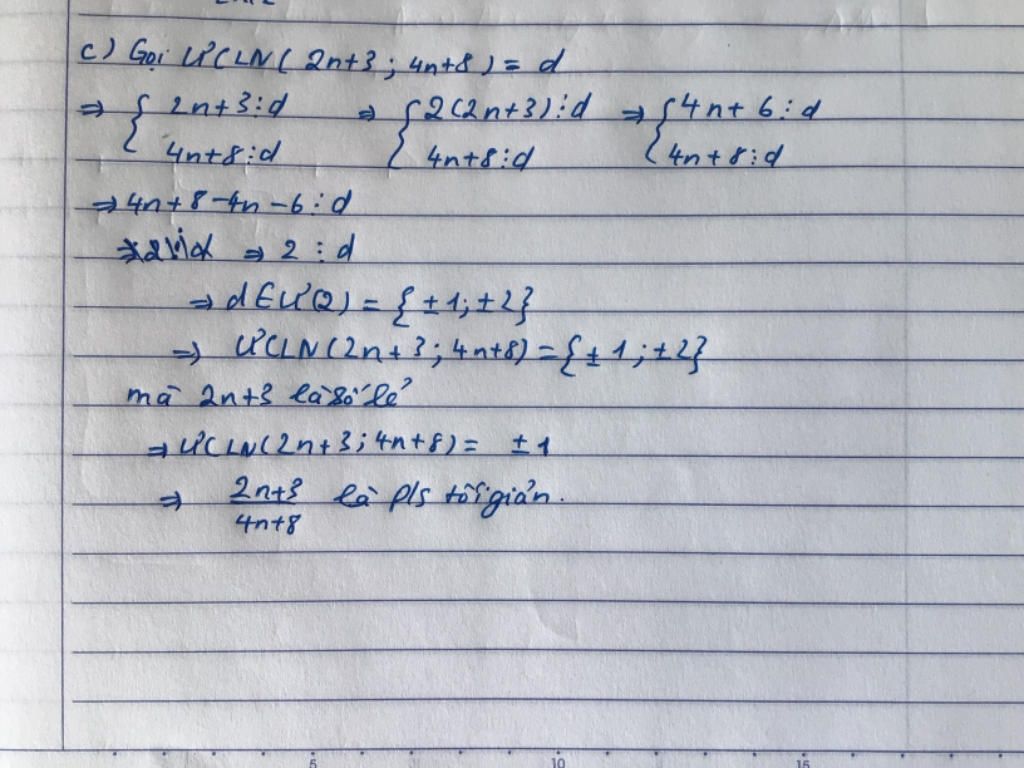 c) Gọi ƯCLN( 2n+3 ; 4n+8 ) = d
⇒ { 2n+3 ⋮ d ⇒ { 2(2n+3) ⋮ d ⇒ { 4n+6 ⋮ d
4n+8 ⋮ d 4n+8 ⋮ d 4n+8 ⋮ d
⇒ 4n+8-4n-6 ⋮ d
⇒ 2 ⋮ d
⇒ d ∈ Ư(2) = { ±1; ±2}
⇒ ƯCLN(2n+3 ; 4n+8) = {±1 ; ±2}
mà 2n+3 là số lẻ
⇒ ƯCLN(2n+3 ; 4n+8) = ±1
⇒ 2n+3/4n+8 là p/s tối giản.
5 10 15